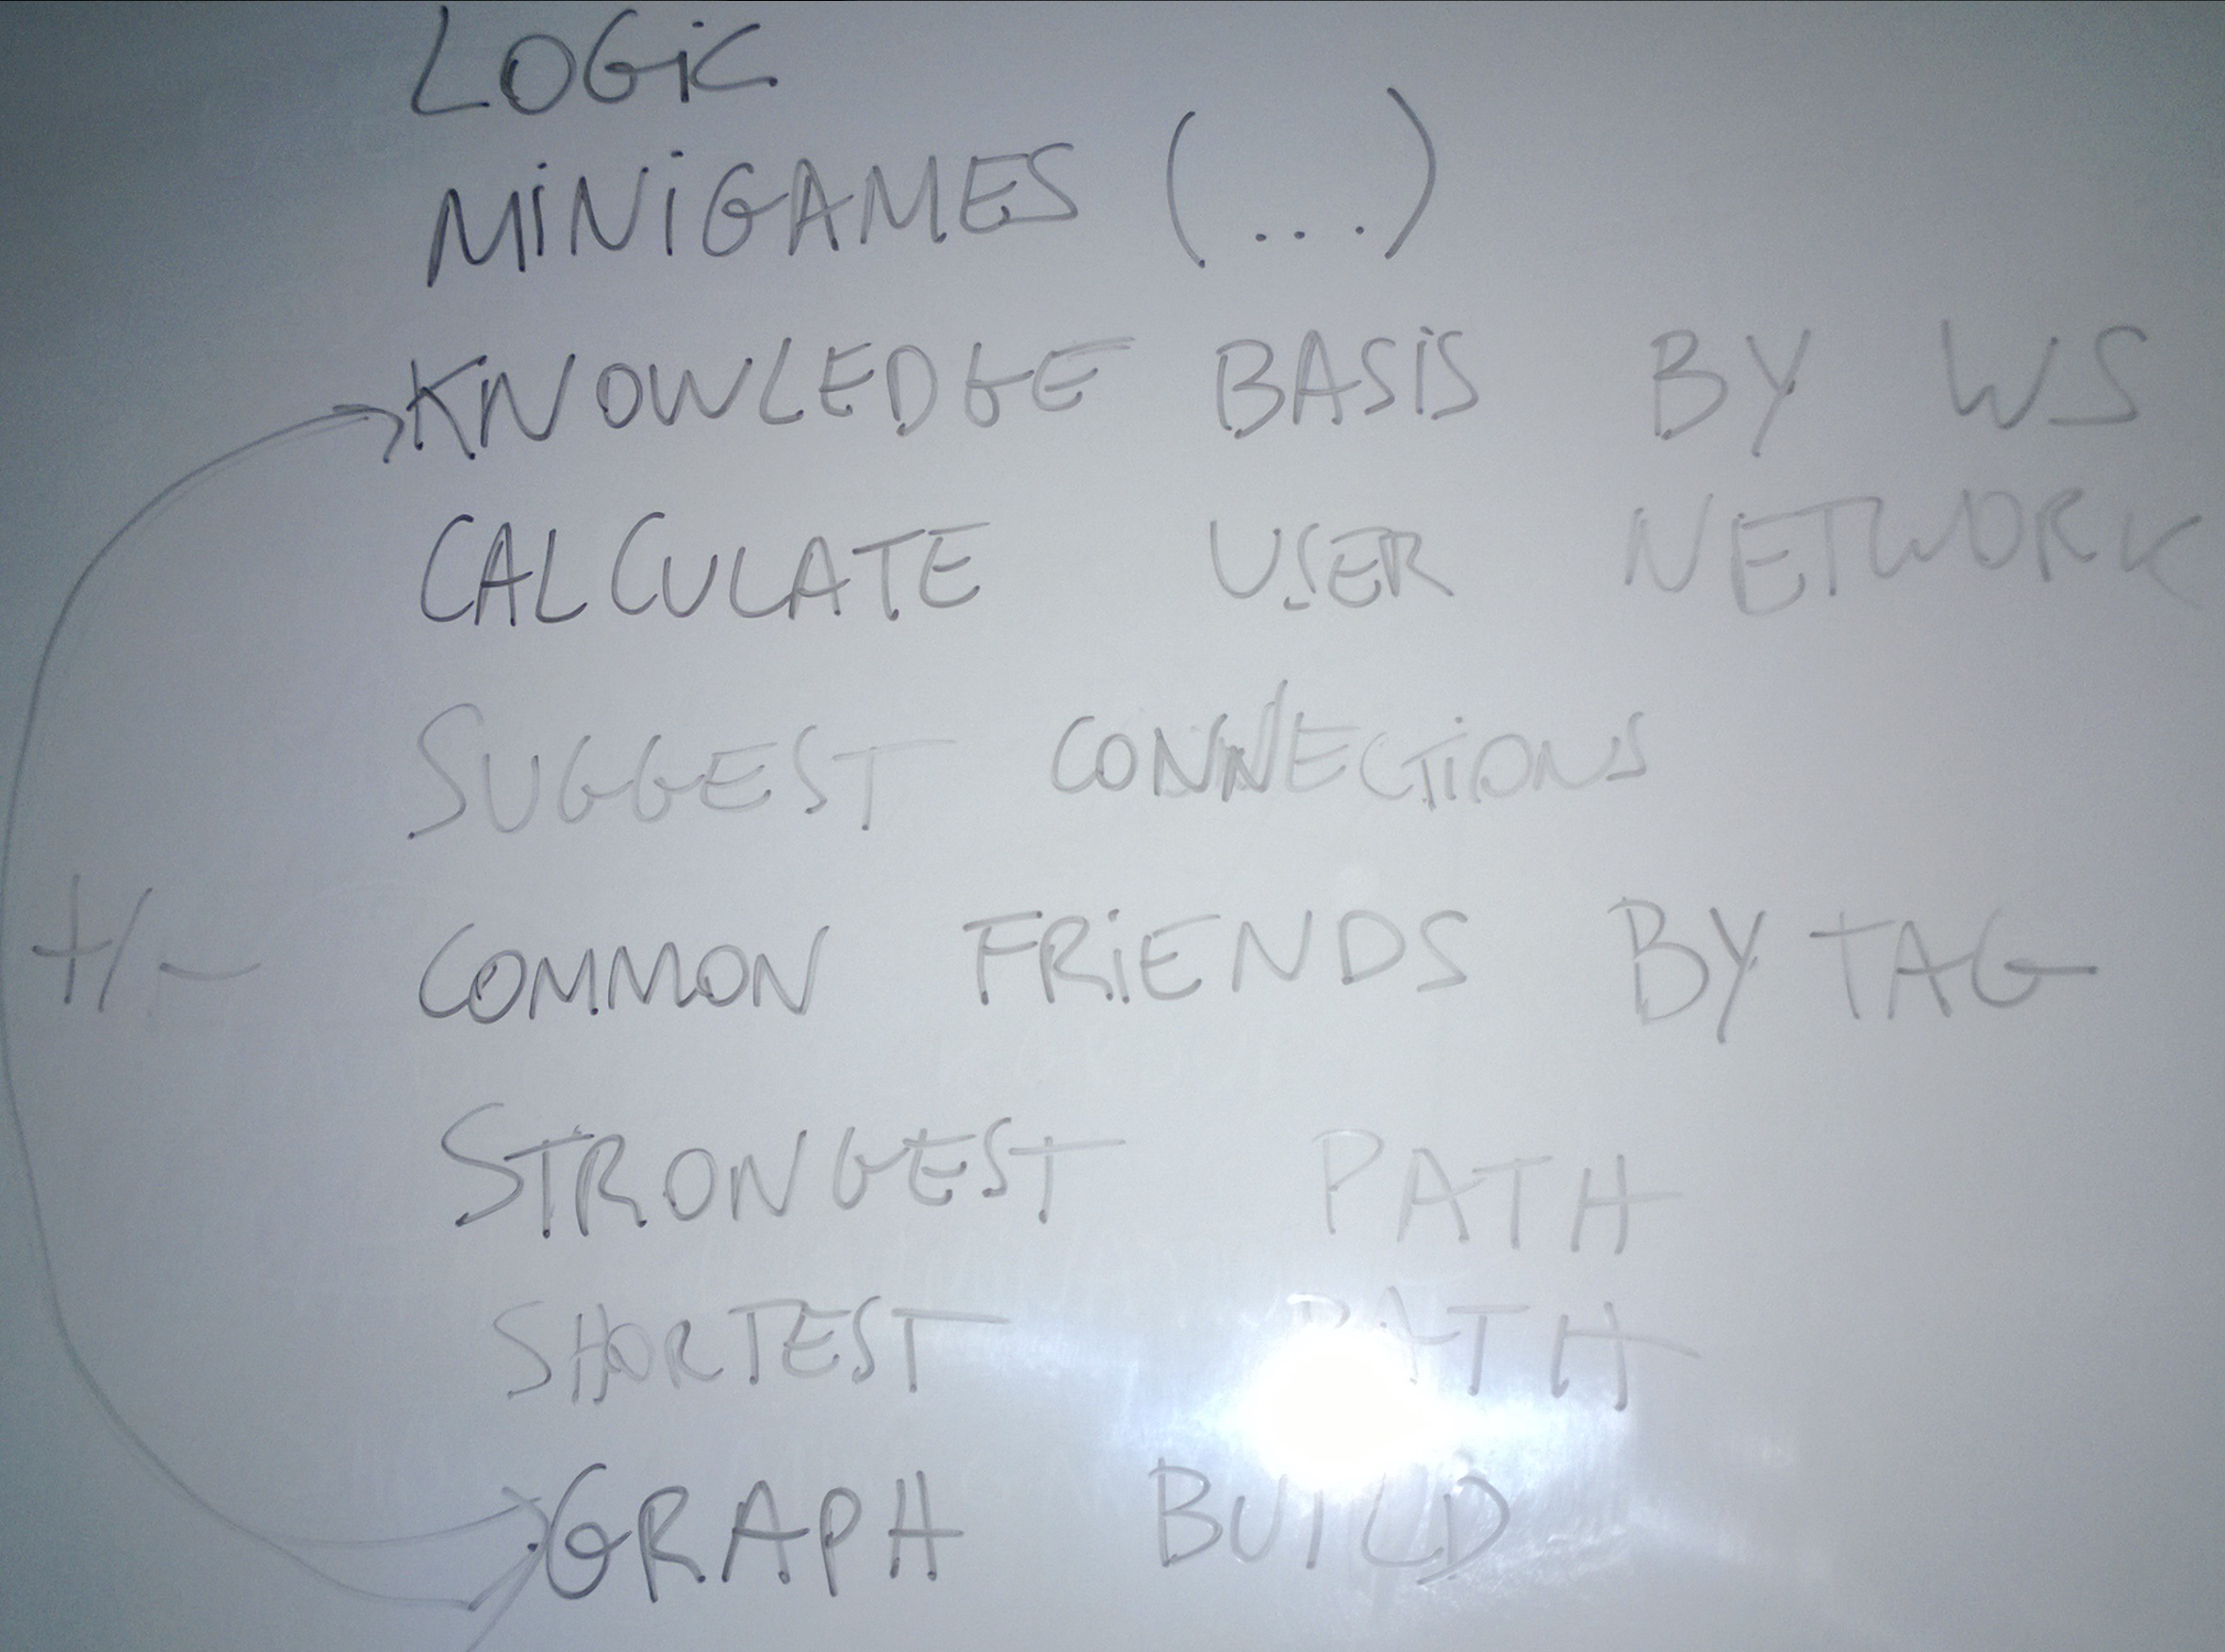 LOGiC
MiNiGAMES (...)
KNOWLEDGE BASiS BY WS
CALCULATE USER NETWORK
SUGGEST CONNECTiONS
+/- COMMON FRiENDS BY TAG
STRONGEST PATH
SHORTEST PATH
GRAPH BUILD